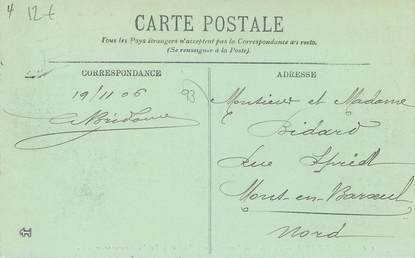 4 12€
CARTE POSTALE
Tous les Pays étrangers n'acceptent pas la Correspondance au recto.
(Se renseigner à la Poste).
CORRESPONDANCE
19/11 06
93
ADRESSE
Monsieur et Madame
Bidard
Rue
Mons-en-Baroeul
Nord